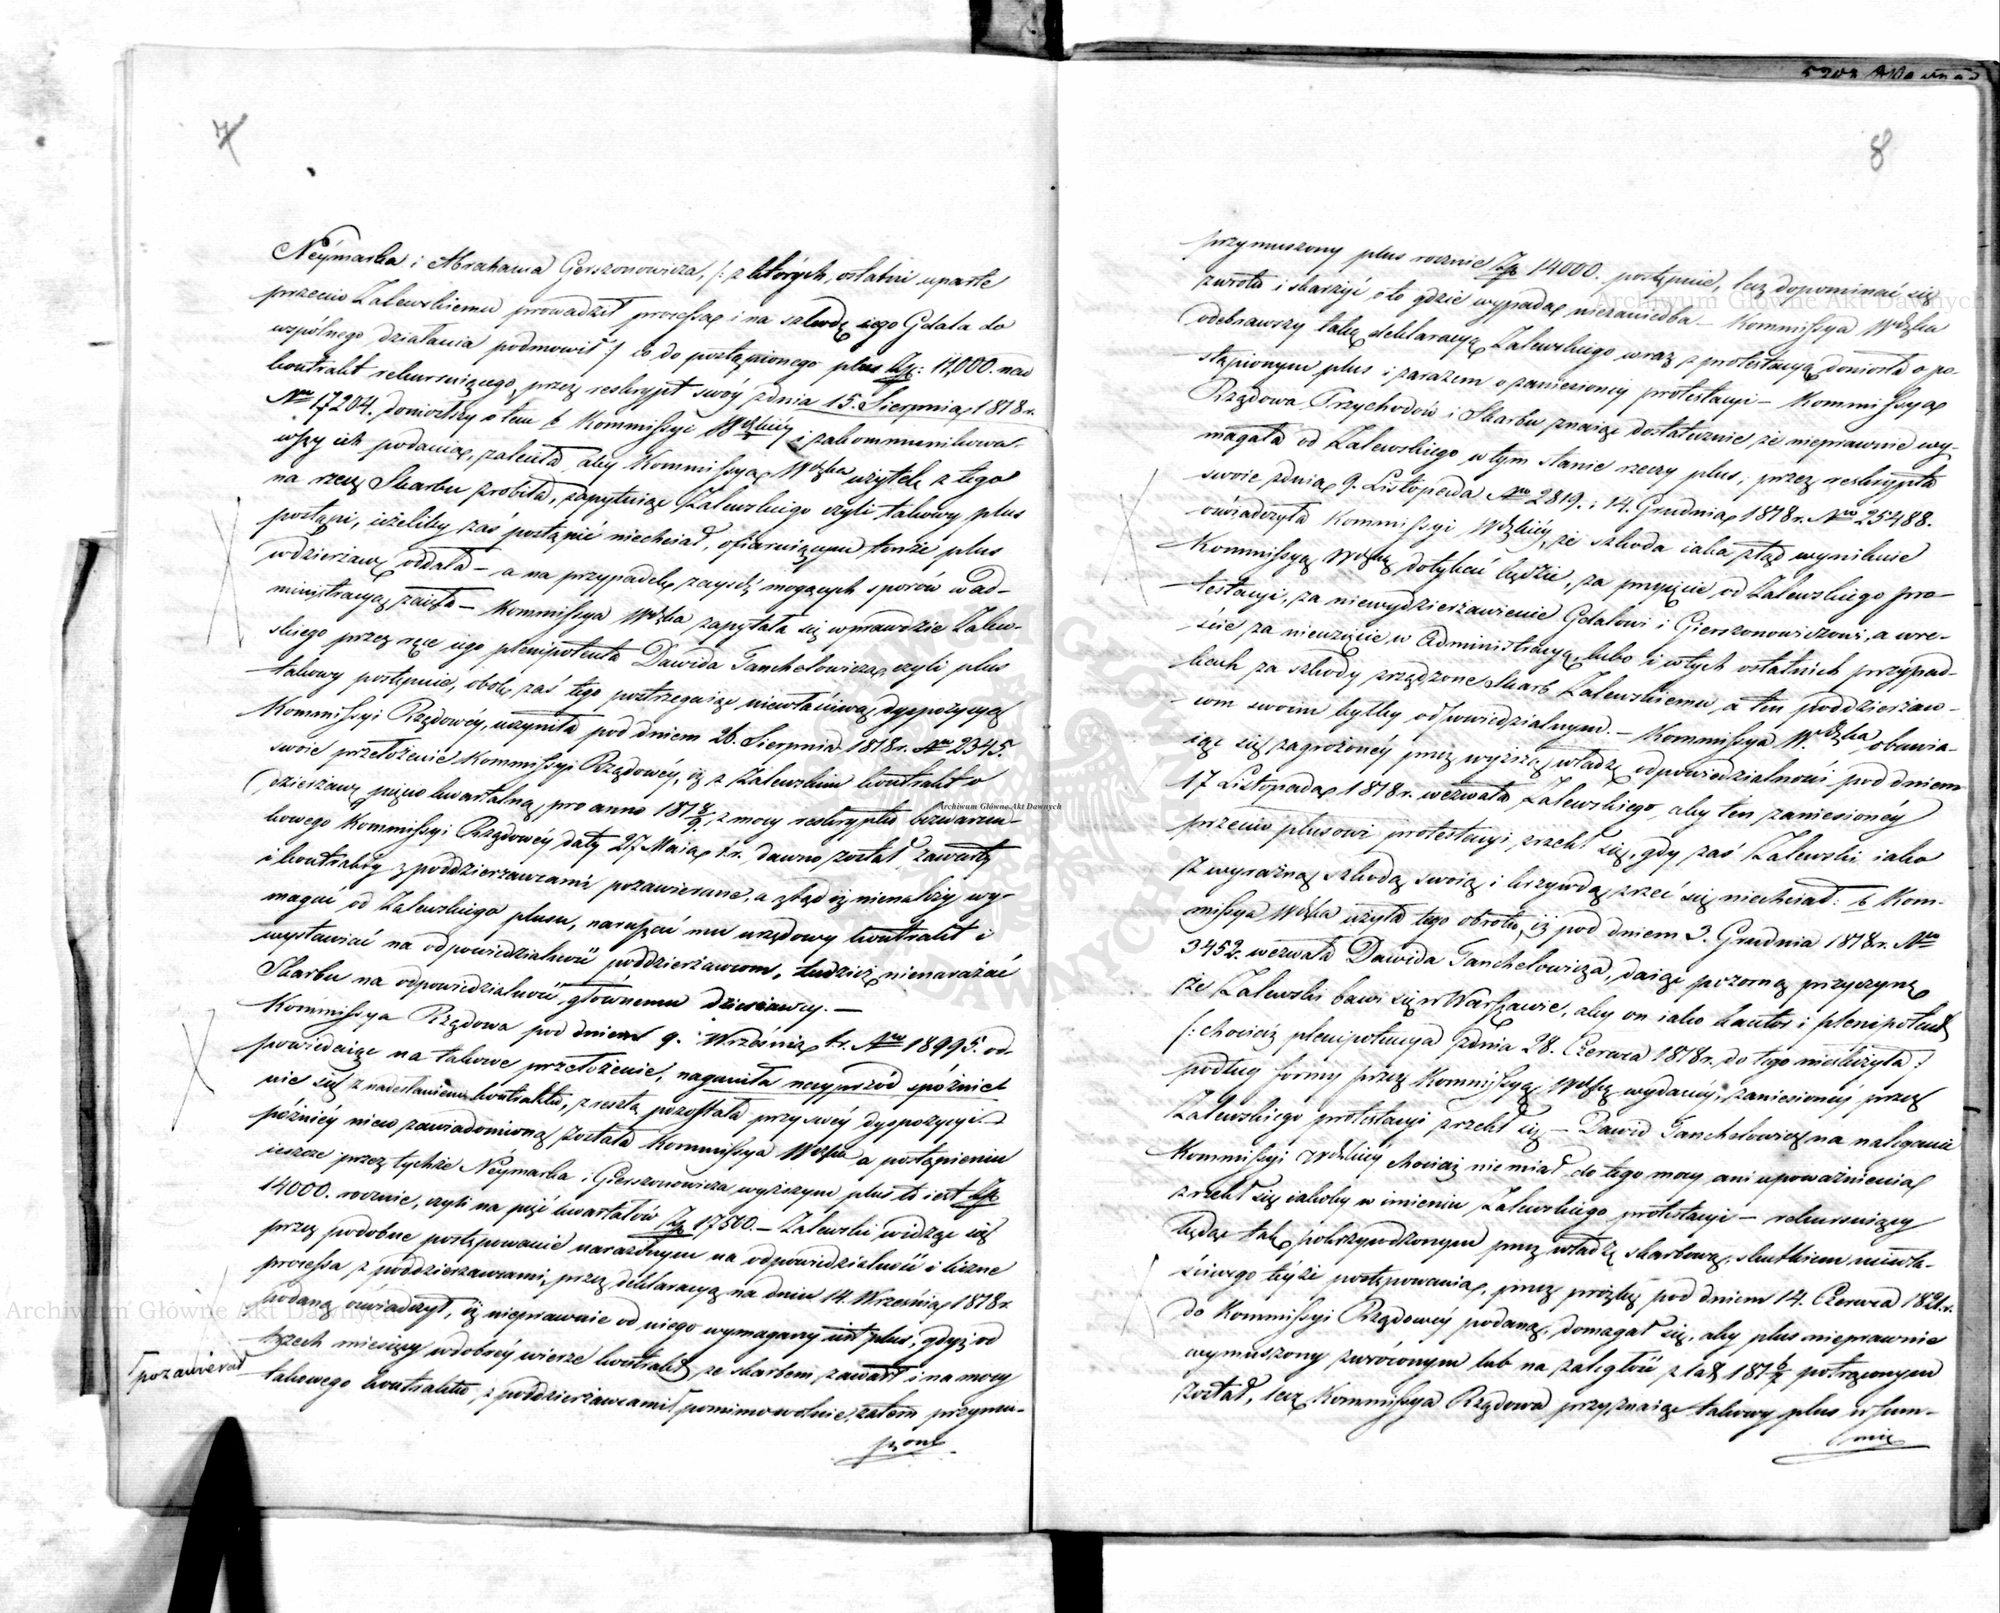 7
Neymarka i Abrahama Gerszonowicza, /: z których, ostatni uparte
przeciw Zalewskiemu prowadził processa i na szkodę iego Gdala do
wspólnego działania podmowił :/ co do postąpionego plus Złp: 11,000. nad
kontrakt rekursuiącego, przez reskrypt swóy z dnia 15. Sierpnia 1818 r.
Nro 17204. doniosłszy o tem Kommissyi Wdzkiey i zakommunikowa-
wszy ich podania, zaleciła, aby Kommissya Wdzka użytek z tego
na rzecz Skarbu zrobiła, zapytuiąc Zalewskiego czyli takowy plus
postąpi, ieżeliby zaś postąpić niechciał, ofiaruiącym tenże plus
w dzierżawę oddała – a na przypadek zayść mogących sporów w ad-
ministracyą zaięła – Kommissya Wdzka zapytała się wprawdzie Zalew-
skiego przez ręce iego plenipotenta Dawida Tanchelowicza, czyli plus
takowy postępuie, obok zaś tego postrzegaiąc niewłaściwą dyspozycyą
Kommissyi Rządowéy, uczyniła pod dniem 26. Sierpnia 1818 r. Nro 2345.
swoie przełożenie Kommissyi Rządowéy, iż z Zalewskim kontrakt o
dzierżawę pięcio kwartalną pro anno 1818/9, z mocy reskryptu bezwarun-
kowego Kommissyi Rządowéy daty 27 Maia t. r. dawno został zawarty
i kontrakty z poddzierżawcami pozawierane, a ztąd iż nienależy wy-
magać od Zalewskiego plusu, naruszać mu urzędowy kontrakt i
wystawiać na odpowiedzialność poddzierżawcom, tudzież nienarażać
Skarbu na odpowiedzialność głównemu dzierżawcy. –
Kommissya Rządowa pod dniem 9. Września t. r. Nro 18995. od-
powiedaiąc na takowe przełożenie, naganiła nayprzód spóźnie-
nie się z nadesłaniem kontraktu, zresztą pozostała przy swéy dyspozycyi –
późniéy nieco zawiadomioną została Kommissya Wdzka o postąpieniu
ieszcze przez tychże Neymarka i Gierszonowicza wyższym plus to iest Złp
14000. rocznie, czyli na pięć kwartałów Złp 17500. – Zalewski widząc się
przez podobne postępowanie narażonym na odpowiedzialność i liczne
processa z poddzierżawcami, przez deklaracyą na dniu 14. Września 1818 r.
podaną oświadczył, iż nieprawnie od niego wymagany iest plus, gdyż od
trzech miesięcy w dobréy wierze kontrakt ze skarbem zawarł i na mocy
pozawierał
takowego kontraktu, z poddzierżawcami pomimowolnie, zatem przymu-
szony
8
przymuszony plus rocznie Złp 14000. postępuie, lecz dopominać się
zwrotu i skarżyć o to gdzie wypada, niezaniedba – Kommissya Wdzka
odebrawszy taką deklaracyą Zalewskiego wraz z protestacyą, doniosła o po-
stąpionym plus i zarazem o zaniesionéy protestacyi – Kommissya
Rządowa Przychodów i Skarbu znaiąc dostatecznie że nieprawnie wy-
magała od Zalewskiego w tym stanie rzeczy plus, przez reskrypta
swoie z dnia 9. Listopada Nro 2819. i 14. Grudnia 1818 r. Nro 25488.
oświadczyła Kommissyi Wdzkiéy, że szkoda iaka ztąd wyniknie
Kommissyą Wdzką dotykać będzie, za przyięcie od Zalewskiego pro-
testacyi, za niewydzierżawienie Gdalowi i Gierszonowiczowi, a wre-
ście za niewzięcie w Administracyą, lubo i w tych ostatnich przypad-
kach za szkody zrządzone skarb Zalewskiemu, a ten poddzierżaw-
com swoim byłby odpowiedzialnym. – Kommissya Wdzka obawia-
iąc się zagrożonéy przez wyższą władzę odpowiedzialności pod dniem
17 Listopada 1818 r. wezwała Zalewskiego, aby ten zaniesionéy
przeciw plusowi protestacyi zrzekł się, gdy zaś Zalewski iako
z wyraźną szkodą swoią i krzywdą zrzec się niechciał: Kom-
missya Wdzka użyła tego obrotu, iż pod dniem 3. Grudnia 1818 r. Nro
3452. wezwała Dawida Tanchelowicza, daiąc pozorną przyczynę
że Zalewski bawi się w Warszawie, aby on iako kantor i plenipotent
/: chociaż plenipotencya z dnia 28. Czerwca 1818 r. do tego niesłużyła :/
podług formy przez Kommissyą Wdzką wydanéy, zaniesionéy przez
Zalewskiego protestacyi zrzekł się – Dawid Tanchelowicz na naleganie
Kommissyi Wdzkiey chociaż nie miał do tego mocy ani upoważnienia
zrzekł się iakoby w imieniu Zalewskiego protestacyi – rekursuiący
będąc tak pokrzywdzonym przez władzę skarbową, skutkiem niewła-
ściwego teyże postępowania, przez proźbę pod dniem 14. Czerwca 1821 r.
do Kommissyi Rządowéy podaną, domagał się, aby plus nieprawnie
wymuszony zwróconym lub na zaległość z lat 1816/7 potrąconym
został, lecz Kommissya Rządowa przyznaiąc takowy plus w sum-
mie
Archiwum Główne Akt Dawnych
Archiwum Główne Akt Dawnych
Archiwum Główne Akt Dawnych